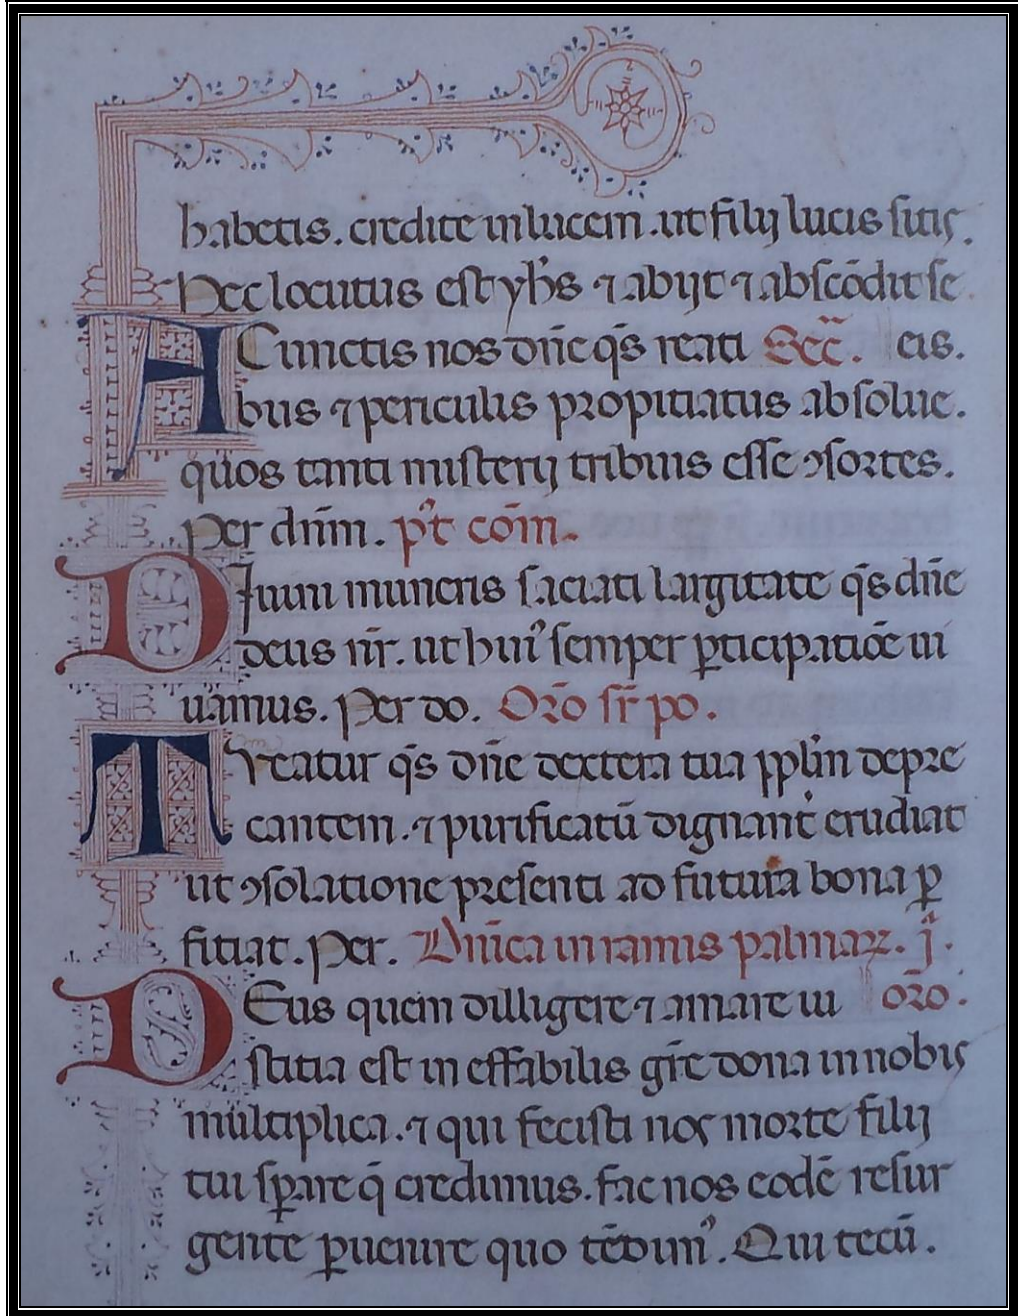 habetis. credite in lucem. ut filij lucis sitis.
Hec locutus est yh's ⁊ abijt ⁊ abscōdit se
A Cunctis nos dn̄e qs̄ reati Secͣ. eis.
bus ⁊ periculis propitiatus absolue.
quos tanti misterij tribuis esse ꝯsortes.
Per dn̄m. p't cōm.
DIuini muneris saciati largitate qs̄ dn̄e
deus nr̄. ut hui' semper ꝑticipatiōe ui
uamus. Per do. Orō sr̄ po.
TUeatur qs̄ dn̄e dextera tua ppl'm depre
cantem. ⁊ purificatū dignant' erudiat
ut ꝯsolatione presenti ad futura bona ꝑ
fitiat. Per. Dn̄ica in ramis palmaꝝ. j̄.
DEus quem dilligere ⁊ amare iu orō.
stitia est in effabilis gr̄e dona in nobis
multiplica. ⁊ qui fecisti nos morte filij
tui sꝑare q̄ credimus. fac nos eodē resur
gente ꝑuenire quo tēdim'. Qui tecū.